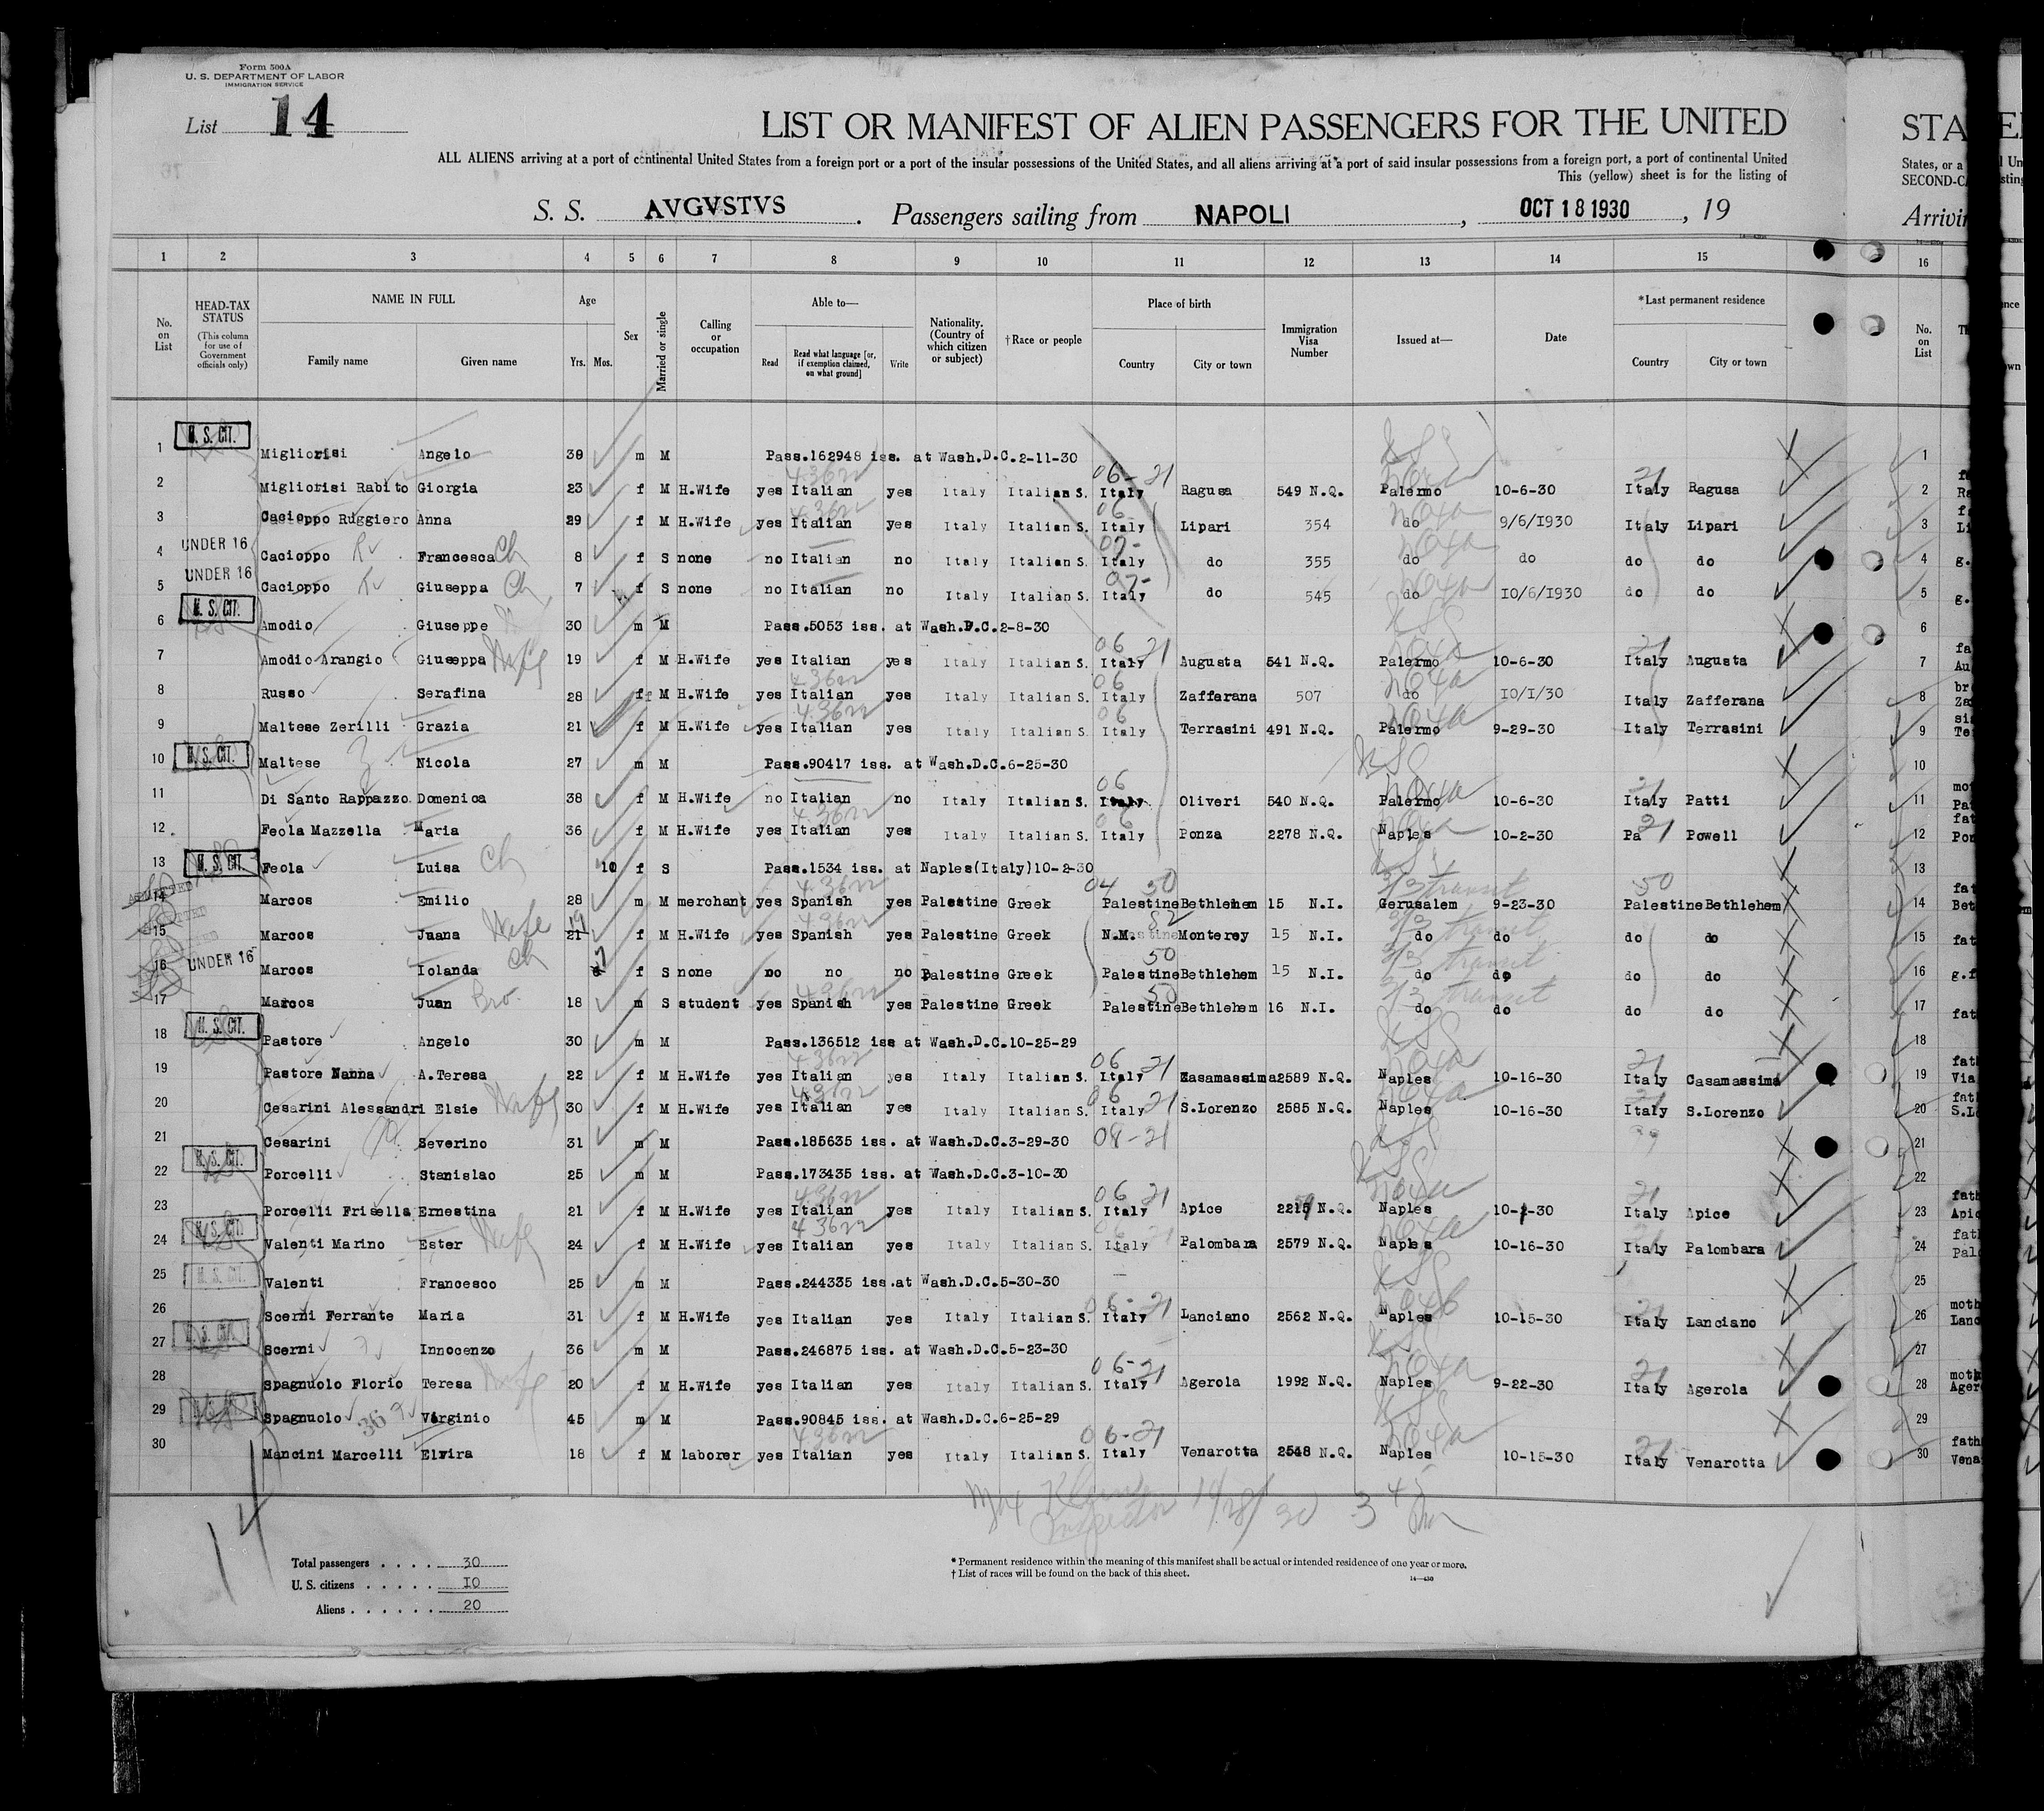 Form 500A
U. S. DEPARTMENT OF LABOR
IMMIGRATION SERVICE
List 14
LIST OR MANIFEST OF ALIEN PASSENGERS FOR THE UNITED STA
ALL ALIENS arriving at a port of continental United States from a foreign port or a port of the insular possessions of the United States, and all aliens arriving at a port of said insular possessions from a foreign port, a port of continental United States, or a
This (yellow) sheet is for the listing of
S. S. AVGVSTVS. Passengers sailing from NAPOLI, OCT 18 1930, 19
1 2 3 4 5 6 7 8 9 10 11 12 13 14 15 16
No. on List
HEAD-TAX STATUS (This column for use of Government officials only)
NAME IN FULL
Family name Given name
Age
Yrs. Mos.
Sex
Married or single
Calling or occupation
Able to—
Read
Read what language [or, if exemption claimed, on what ground]
Write
Nationality. (Country of which citizen or subject)
†Race or people
Place of birth
Country City or town
Immigration Visa Number
Issued at—
Date
*Last permanent residence
Country City or town
No. on List
1 U. S. CIT. Migliorisi Angelo 30 m M Pass.162948 iss. at Wash.D.C.2-11-30
2 Migliorisi Rabito Giorgia 23 f M H.Wife yes Italian yes Italy Italian S. Italy Ragusa 549 N.Q. Palermo 10-6-30 Italy Ragusa
3 Cacioppo Ruggiero Anna 29 f M H.Wife yes Italian yes Italy Italian S. Italy Lipari 354 do 9/6/1930 Italy Lipari
4 UNDER 16 Cacioppo Francesca Ch 8 f S none no Italian no Italy Italian S. Italy do 355 do do do do
5 UNDER 16 Cacioppo Giuseppa Ch 7 f S none no Italian no Italy Italian S. Italy do 545 do 10/6/1930 do do
6 U. S. CIT. Amodio Giuseppe 30 m M Pass.5053 iss. at Wash.D.C.2-8-30
7 Amodio Arangio Giuseppa Wife 19 f M H.Wife yes Italian yes Italy Italian S. Italy Augusta 541 N.Q. Palermo 10-6-30 Italy Augusta
8 Russo Serafina 28 f M H.Wife yes Italian yes Italy Italian S. Italy Zafferana 507 do 10/1/30 Italy Zafferana
9 Maltese Zerilli Grazia 21 f M H.Wife yes Italian yes Italy Italian S. Italy Terrasini 491 N.Q. Palermo 9-29-30 Italy Terrasini
10 U. S. CIT. Maltese Nicola 27 m M Pass.90417 iss. at Wash.D.C.6-25-30
11 Di Santo Rappazzo Domenica 38 f M H.Wife no Italian no Italy Italian S. Italy Oliveri 540 N.Q. Palermo 10-6-30 Italy Patti
12 Feola Mazzella Maria 36 f M H.Wife yes Italian yes Italy Italian S. Italy Ponza 2278 N.Q. Naples 10-2-30 Pa Powell
13 U. S. CIT. Feola Luisa Ch 10 f S Pass.1534 iss. at Naples(Italy)10-2-30
14 Marcos Emilio 28 m M merchant yes Spanish yes Palestine Greek Palestine Bethlehem 15 N.I. Gerusalem 9-23-30 Palestine Bethlehem
15 Marcos Juana Wife 21 f M H.Wife yes Spanish yes Palestine Greek N.M. Monterey 15 N.I. do do do do
16 UNDER 16 Marcos Iolanda Ch 7 f S none no no no Palestine Greek Palestine Bethlehem 15 N.I. do do do do
17 Marcos Juan Bro. 18 m S student yes Spanish yes Palestine Greek Palestine Bethlehem 16 N.I. do do do do
18 U. S. CIT. Pastore Angelo 30 m M Pass.136512 iss at Wash.D.C.10-25-29
19 Pastore Nanna A.Teresa 22 f M H.Wife yes Italian yes Italy Italian S. Italy Casamassima 2589 N.Q. Naples 10-16-30 Italy Casamassima
20 Cesarini Alessandri Elsie Wife 30 f M H.Wife yes Italian yes Italy Italian S. Italy S.Lorenzo 2585 N.Q. Naples 10-16-30 Italy S.Lorenzo
21 Cesarini Severino 31 m M Pass.185635 iss. at Wash.D.C.3-29-30
22 U. S. CIT. Porcelli Stanislao 25 m M Pass.173435 iss. at Wash.D.C.3-10-30
23 Porcelli Frisella Ernestina 21 f M H.Wife yes Italian yes Italy Italian S. Italy Apice N.Q. Naples 10-1-30 Italy Apice
24 U. S. CIT. Valenti Marino Ester Wife 24 f M H.Wife yes Italian yes Italy Italian S. Italy Palombara 2579 N.Q. Naples 10-16-30 Italy Palombara
25 U. S. CIT. Valenti Francesco 25 m M Pass.244335 iss.at Wash.D.C.5-30-30
26 Scerni Ferrante Maria 31 f M H.Wife yes Italian yes Italy Italian S. Italy Lanciano 2562 N.Q. Naples 10-15-30 Italy Lanciano
27 U. S. CIT. Scerni Innocenzo 36 m M Pass.246875 iss. at Wash.D.C.5-23-30
28 Spagnuolo Florio Teresa Wife 20 f M H.Wife yes Italian yes Italy Italian S. Italy Agerola 1992 N.Q. Naples 9-22-30 Italy Agerola
29 Spagnuolo Virginio 45 m M Pass.90845 iss. at Wash.D.C.6-25-29
30 Mancini Marcelli Elvira 18 f M laborer yes Italian yes Italy Italian S. Italy Venarotta 2548 N.Q. Naples 10-15-30 Italy Venarotta
Inspector
14
Total passengers . . . . 30
U. S. citizens . . . . . 10
Aliens . . . . . . 20
* Permanent residence within the meaning of this manifest shall be actual or intended residence of one year or more.
† List of races will be found on the back of this sheet.